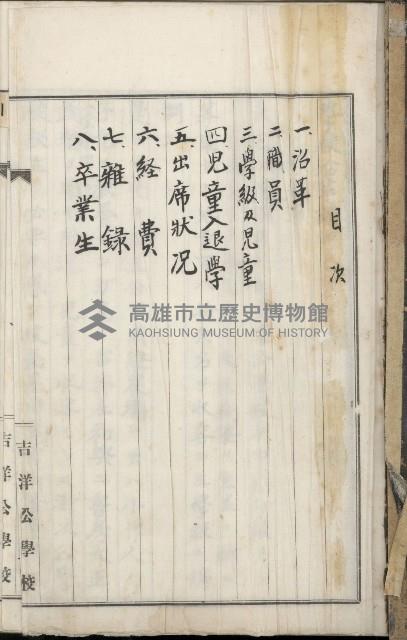 目次
一、沿革
二、職員
三、學級及児童
四、児童入退學
五、出席狀況
六、経費
七、雜錄
八、卒業生
吉洋公學校
吉洋公學校
高雄市立歷史博物館
KAOHSIUNG MUSEUM OF HISTORY